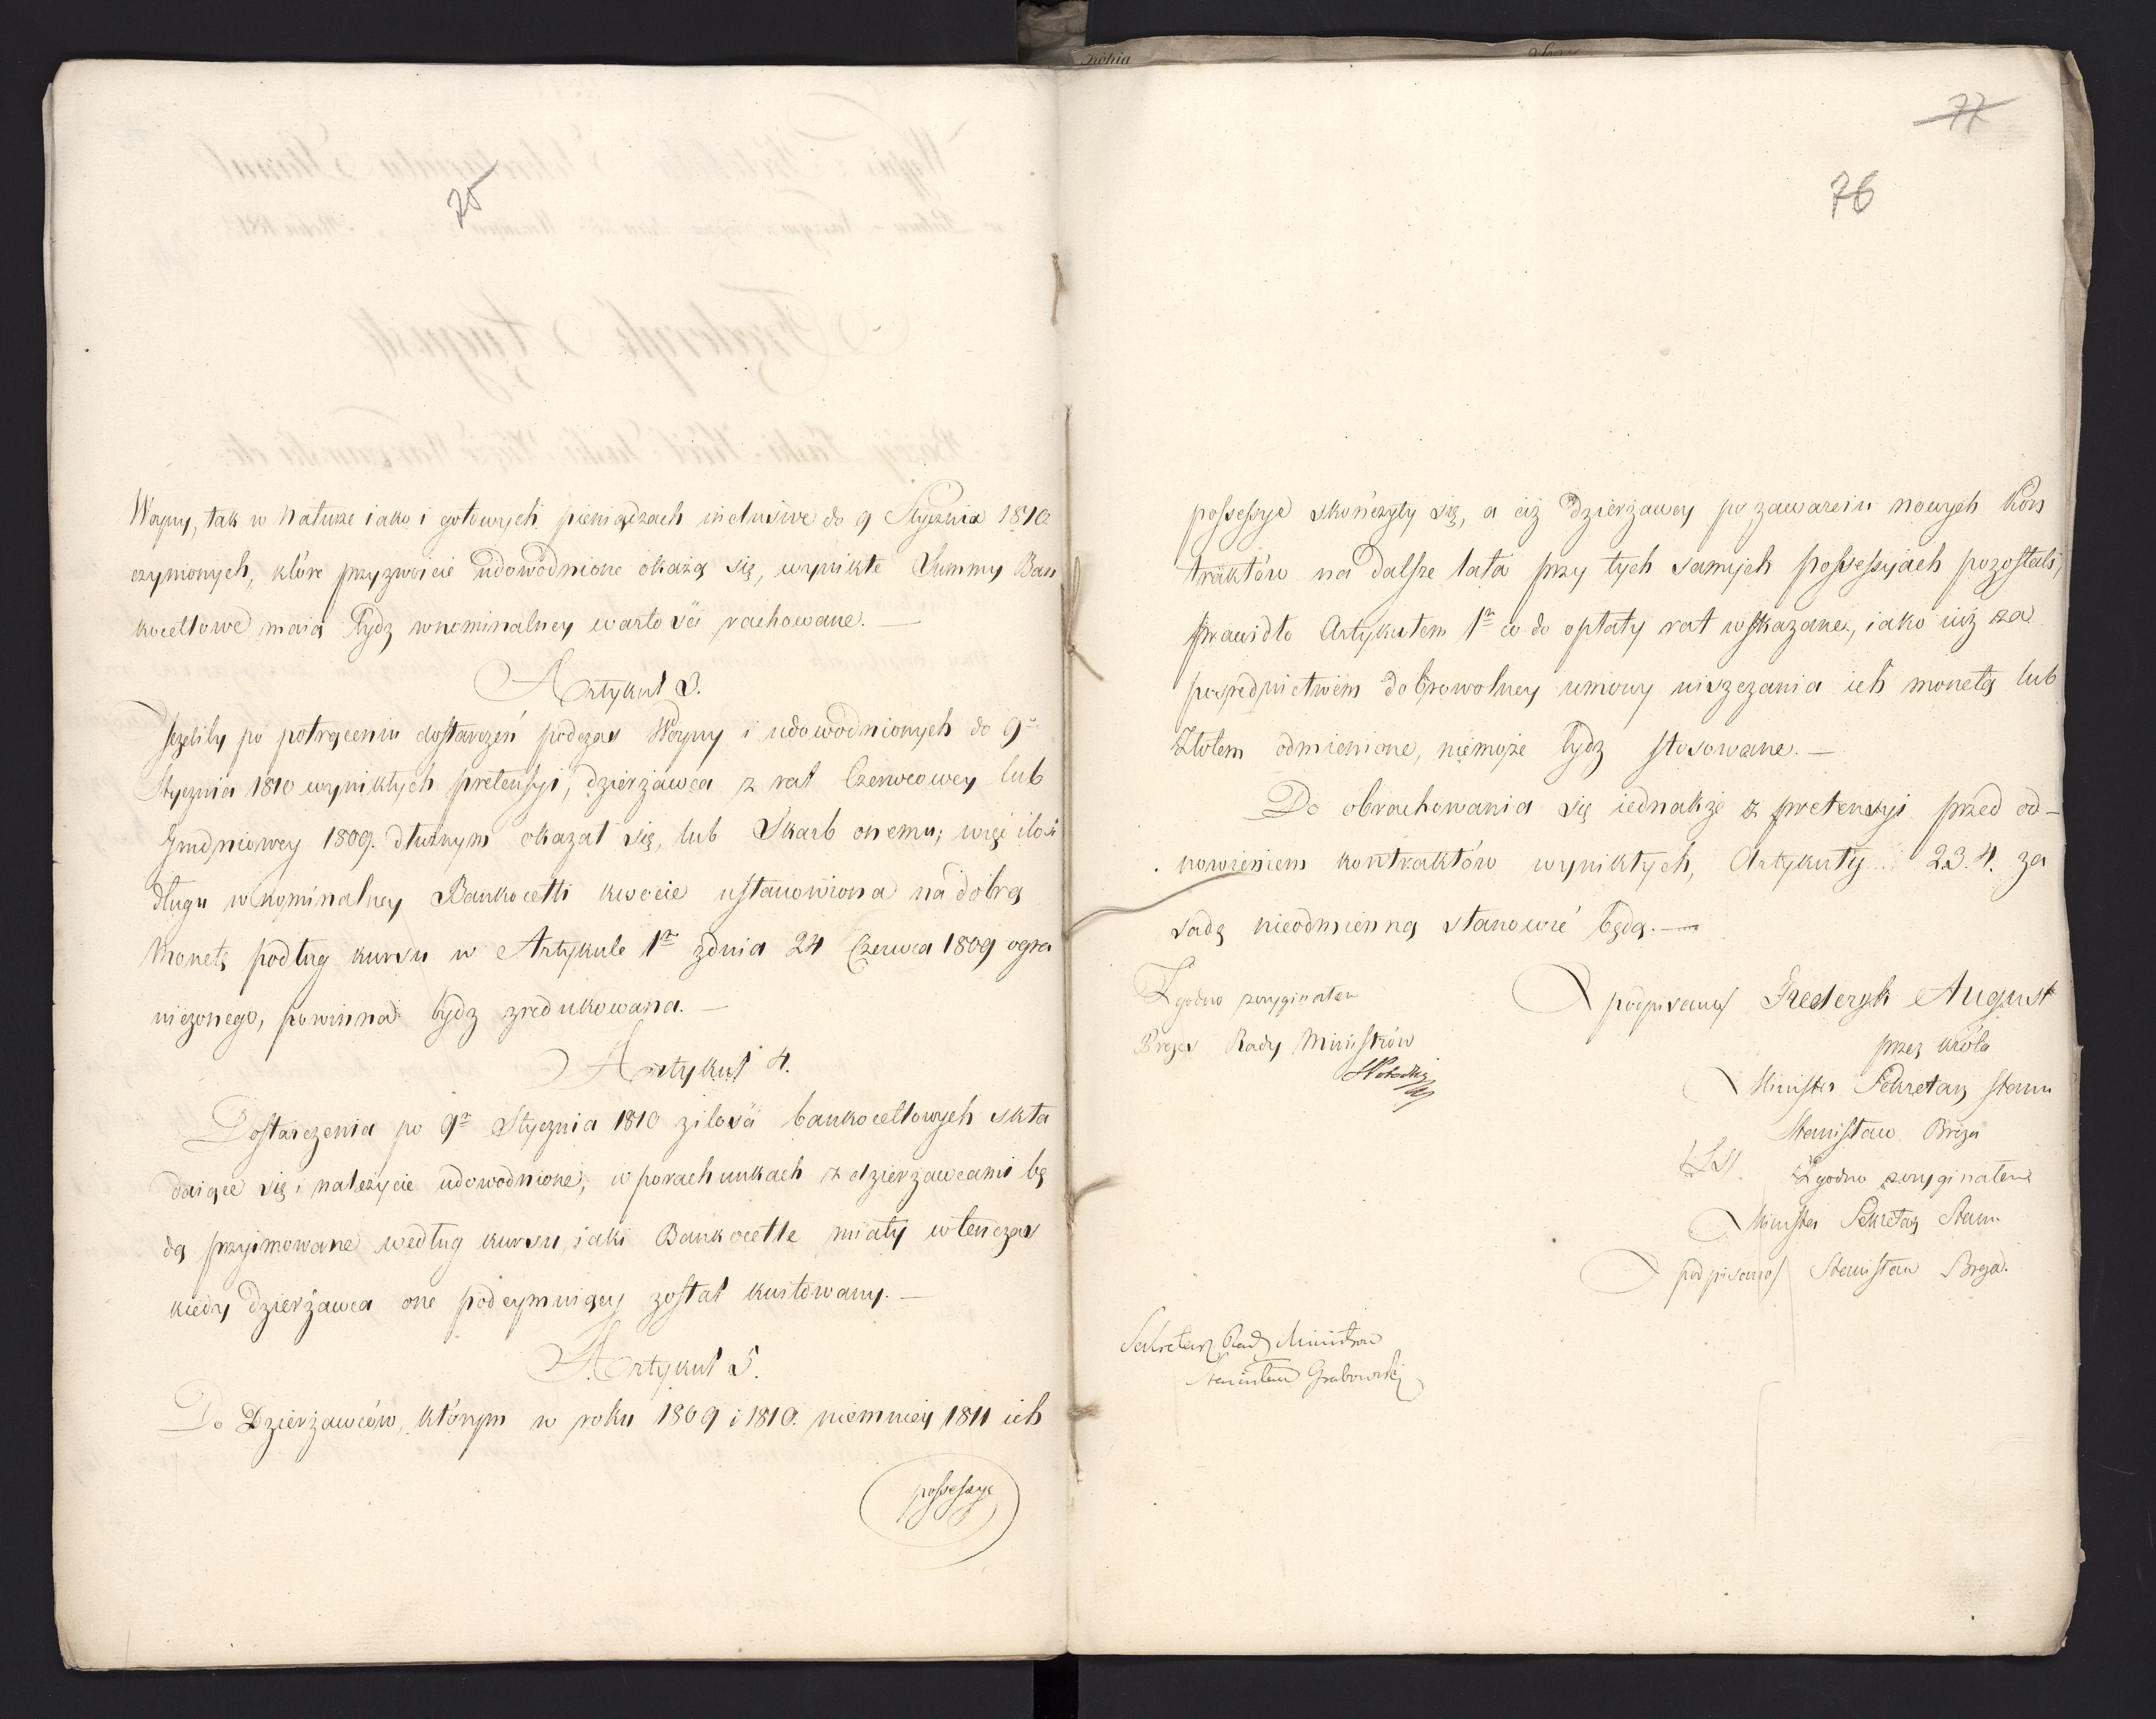 75
Woyny, tak w naturze iako i gotowych pieniądzach inclusive do 9 Stycznia 1810
czynionych, które przyzwoicie udowodnione okażą się, wynikłe Summy Ban
kocetlowe maią bydz w nominalney wartości rachowane. —
Artykuł 3.
Jeżeliby po potrąceniu dostarczeń podczas Woyny i udowodnionych do 9º
Stycznia 1810 wynikłych pretensyi, dzierżawca z rat Czerwcowey lub
Grudniowey 1809. dłużnym okazał się, lub Skarb onemu; więc ilość
długu w nominalney Bankocetli kwocie ustanowiona na dobrą
Monetę podług kursu w Artykule 1m zdnia 24 Czerwca 1809 ogra
niczonego, powinna bydz zredukowana. —
Artykuł 4.
Dostarczenia po 9m Stycznia 1810 z ilości bankocetlowych skła
daiące się i należycie udowodnione, w porachunkach z dzierżawcami bę
dą przyimowane według kursu, iaki Bankocetle miały wtenczas
kiedy dzierżawca one podeymuiący został kwitowany. —
Artykuł 5.
Do Dzierżawców, którym w roku 1809 i 1810. niemniey 1811 ich
possessye
77
76
possessye skończyły się, a ciż dzierżawcy po zawarciu nowych Kon
traktów na dalsze lata przy tych samych possessyiach pozostali,
prawidło Artykułem 1m co do opłaty rat wskazane, iako iuż za
pośrednictwem dobrowolney umowy uiszczania ich monetą lub
złotem odmienione, niemoże bydz stosowane. —
Do obrachowania się iednakże z pretensyi przed od-
nowieniem kontraktów wynikłych, Artykuły 2 3. 4. za
sadę nieodmienną stanowić będą. —
Zgodno z oryginałem
Prezes Rady Ministrów
podpisano/ Fryderyk August
przez króla
Minister Sekretarz Stanu
Stanisław Breza
/LS/. Zgodno z oryginałem
Minister Sekretarz Stanu
podpisano/ Stanisław Breza.
Sekretarz Rady Ministrów
Stanisław Grabowski